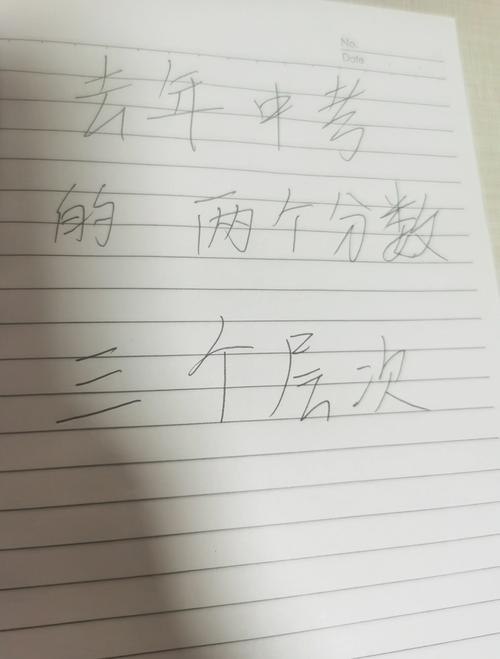 No.
Date
去年中考
的 两个分数
三个层次